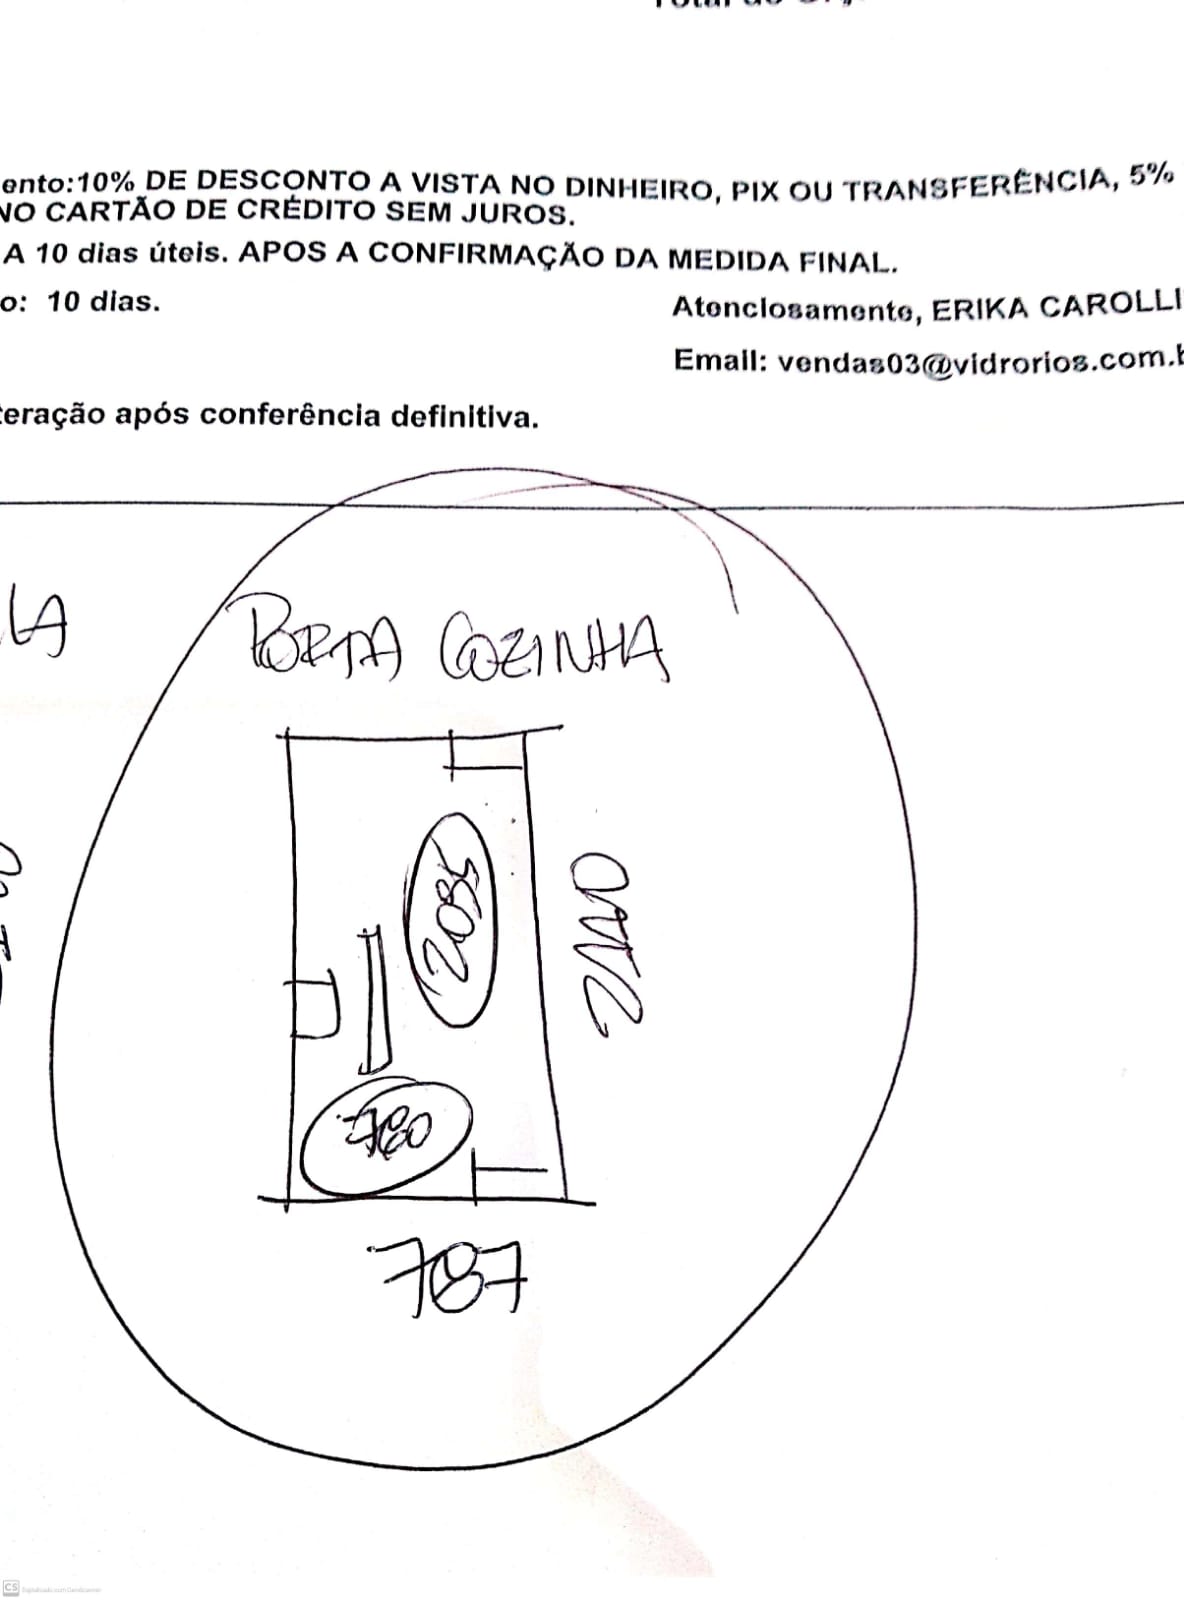 ento:10% DE DESCONTO A VISTA NO DINHEIRO, PIX OU TRANSFERÊNCIA, 5%
NO CARTÃO DE CRÉDITO SEM JUROS.
A 10 dias úteis. APOS A CONFIRMAÇÃO DA MEDIDA FINAL.
o: 10 dias.
Atenciosamente, ERIKA CAROLLI
Email: vendas03@vidrorios.com.b
teração após conferência definitiva.
LA
PORTA COZINHA
2085
780
787
CS Digitalizado com CamScanner